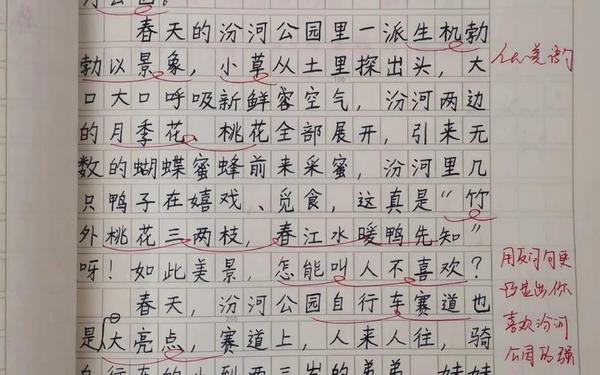 公园。
春天的汾河公园里一派生机勃
勃以景象，小草从土里探出头，大
口大口呼吸新鲜容空气，汾河两边
的月季花、桃花全部展开，引来无
数的蝴蝶蜜蜂前来采蜜，汾河里几
只鸭子在嬉戏、觅食，这真是“竹
外桃花三两枝，春江水暖鸭先知”
呀！如此美景，怎能叫人不喜欢？
春天，汾河公园自行车赛道也
是大亮点，赛道上，人来人往，骑
自行车的小到两三岁的弟弟、妹妹
用反问句更
喜欢汾河
公园的强